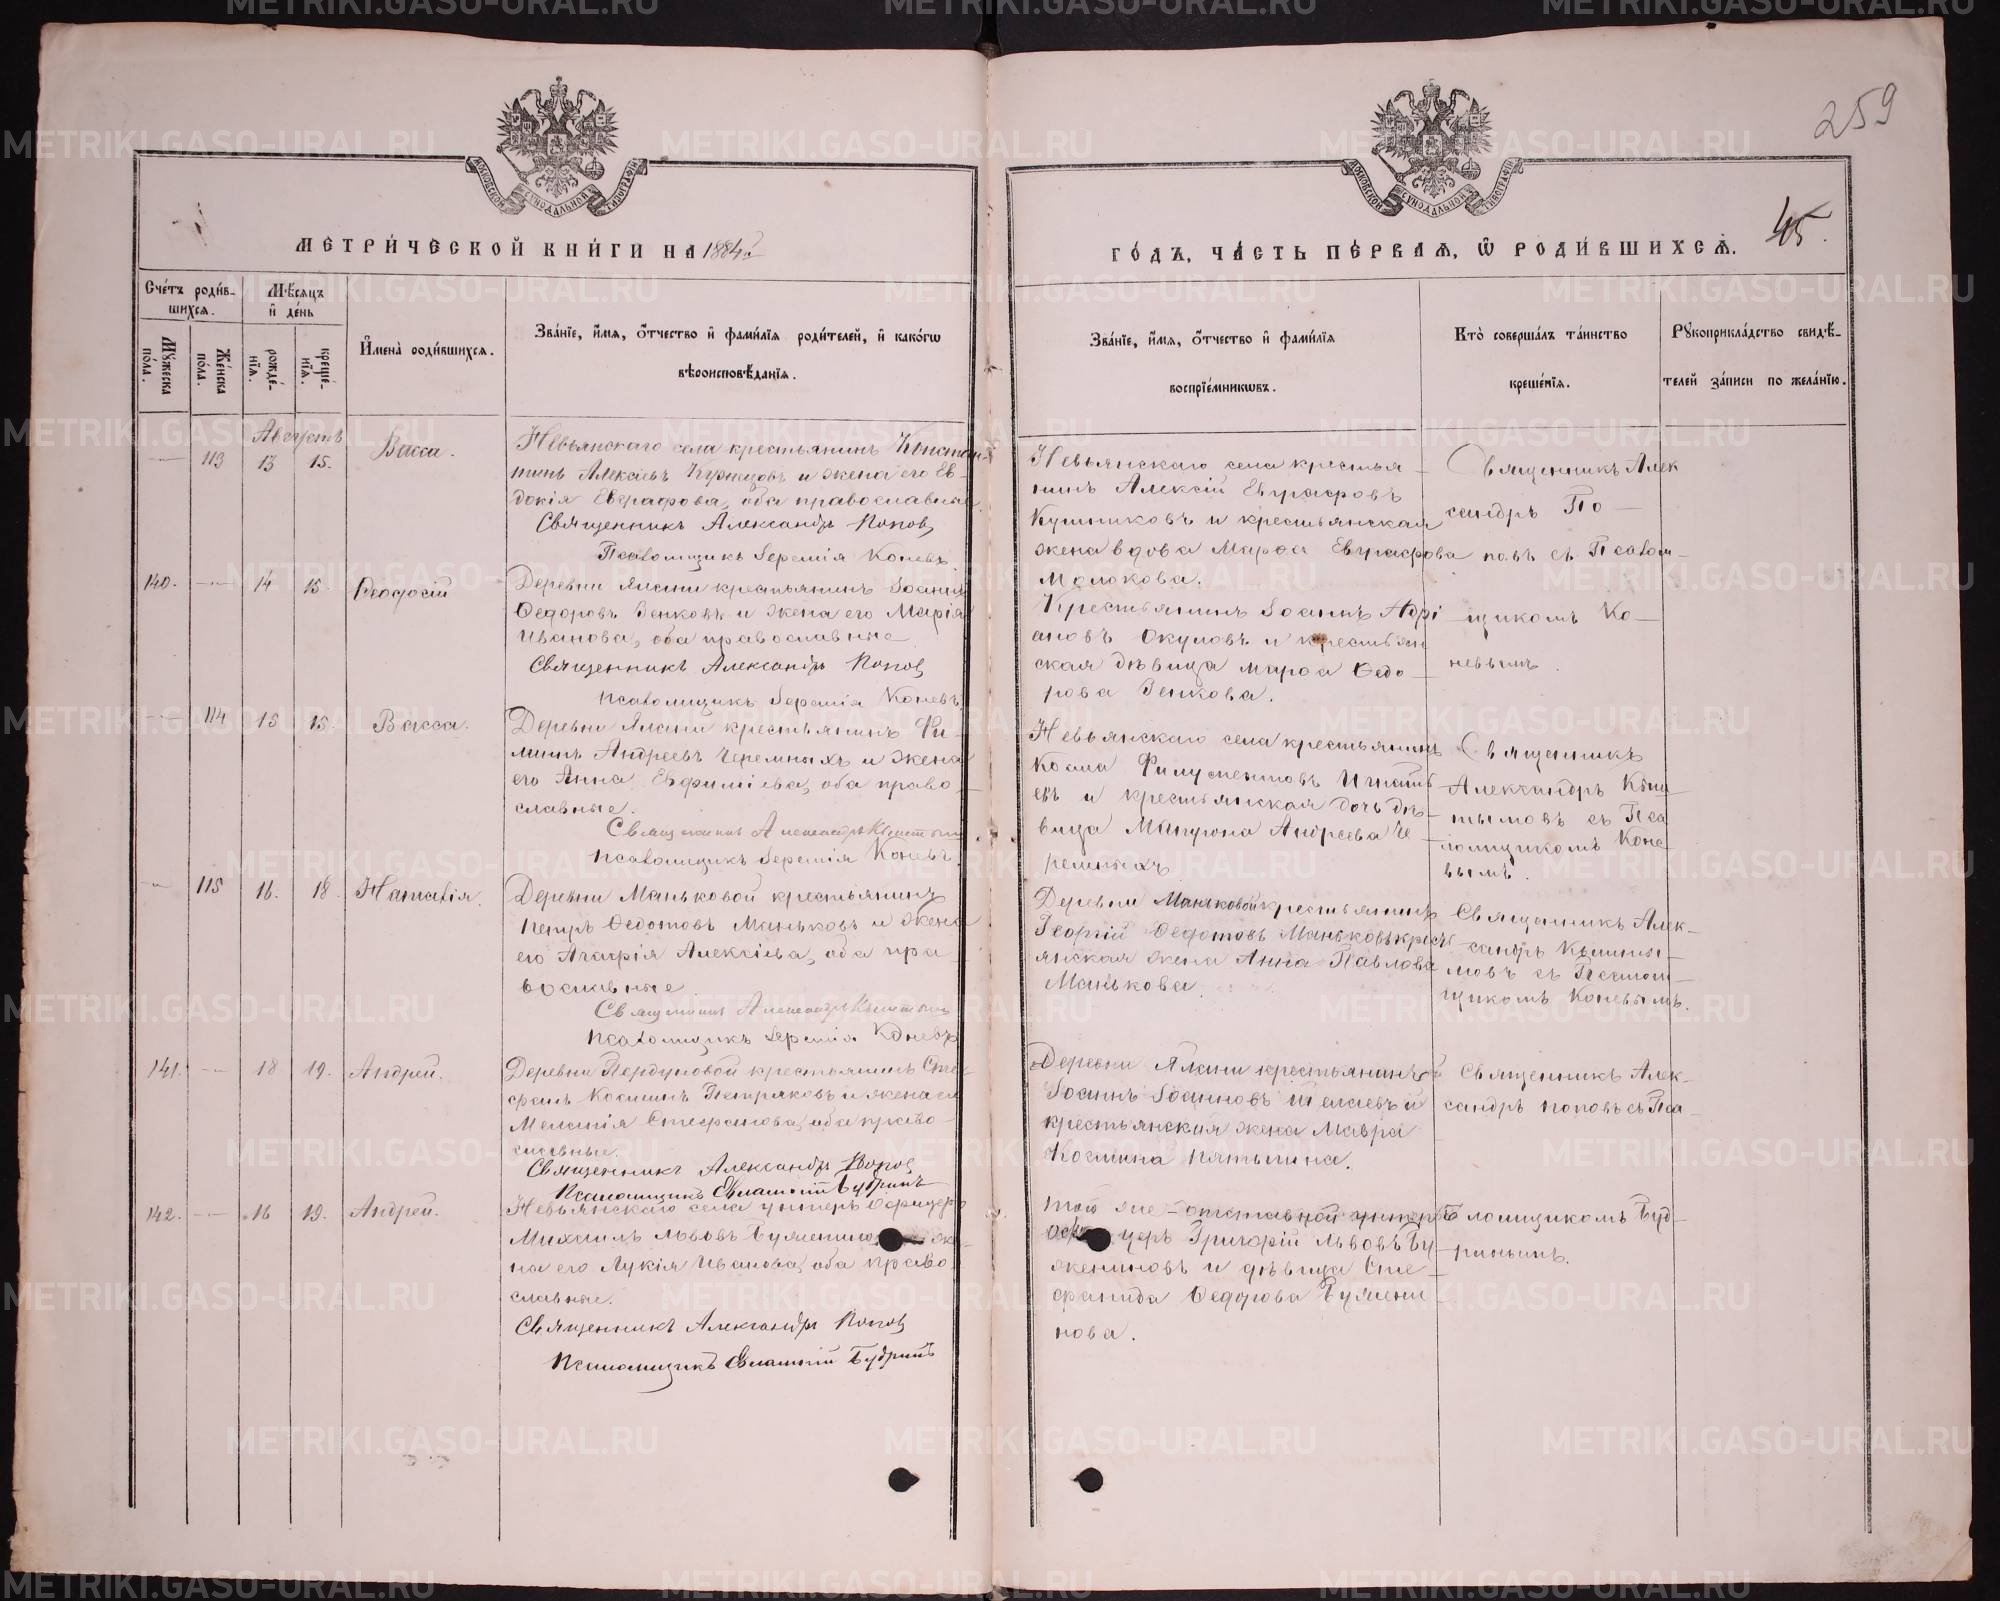 259
45.
МЕТРИЧЕСКОЙ КНИГИ НА 1884 г
ГОДЪ, ЧАСТЬ ПЕРВАЯ, Ѡ РОДИВШИХСЯ.
МОСКОВСКОЙ СѴНОДАЛЬНОЙ ТИПОГРАФІИ
МОСКОВСКОЙ СѴНОДАЛЬНОЙ ТИПОГРАФІИ
Счетъ родив-
шихся.
Мужеска пола.
Женска пола.
Мѣсяцъ
и день
рожде-
нія.
креще-
нія.
Имена родившихся.
Званіе, имя, отчество и фамилія родителей, и какогѡ
вѣроисповѣданія.
Званіе, имя, отчество и фамилія
воспріемниковъ.
Кто совершалъ таинство
крещенія.
Рукоприкладство свидѣ-
телей записи по желанію.
Августъ
113 13 15. Васса.
Невьянскаго села крестьянинъ Констан-
тинъ Алексѣевъ и жена его Ев-
докія Евграфова, оба православные
Священникъ Александръ Поповъ
Псаломщикъ Іеремія Коневъ.
Невьянскаго села крестья-
нинъ Алексій Евграфовъ
и крестьянская
жена вдова Марфа Евграфова
Молокова.
Священникъ Алек
сандръ По-
повъ съ Псалом-
щикомъ Ко-
невымъ.
140. 14 15. Ѳеодосій
Деревни Ялани крестьянинъ Іоаннъ
Ѳедоровъ Зенковъ и жена его Марія
Иванова, оба православные
Священникъ Александръ Поповъ
Псаломщикъ Іеремія Коневъ.
Крестьянинъ Іоаннъ Адрі
ановъ Окуловъ и крестьян
ская дѣвица Марфа Ѳедо-
рова Зенкова.
114 15 15. Васса.
Деревни Ялани крестьянинъ Фи-
липпъ Андреевъ Черемныхъ и жена
его Анна Евфиміева, оба право-
славные.
Священникъ Александръ Кыштымовъ
Псаломщикъ Іеремія Коневъ.
Невьянскаго села крестьянинъ
Косма Филуменовъ Игнать
евъ и крестьянская дочь дѣ-
вица Андреева Че-
ремныхъ
Священникъ
Александръ Кыш-
тымовъ съ Пса
ломщикомъ Коне
вымъ.
115 16. 18. Наталія.
Деревни Маньковой крестьянинъ
Петръ Ѳедотовъ Маньковъ и жена
его Агафія Алексіева, оба пра-
вославные
Священникъ Александръ Кыштымовъ
Псаломщикъ Іеремія Коневъ
Деревни Маньковой крестьянинъ
Георгій Ѳедотовъ Маньковъ крест
янская жена Анна Павлова
Манькова.
Священникъ Алек-
сандръ Кышты-
мовъ съ Псалом-
щикомъ Коневымъ.
141. 18 19. Андрей.
Деревни крестьянинъ Сте-
фанъ Косминъ Петряковъ и жена его
Меланія Стефанова, оба право-
славные.
Священникъ Александръ Поповъ
Псаломщикъ Евлампій Будринъ
Деревни Ялани крестьянинъ
Іоаннъ Іоанновъ и
крестьянская жена Мавра
Космина Пятыгина.
Священникъ Алек-
сандръ Поповъ съ Пса-
ломщикомъ Буд-
ринымъ.
142. 16 19. Андрей.
Невьянскаго села унтеръ офицеръ
Михаилъ Львовъ Буженин же-
на его Лукія Иванова, оба право-
славные.
Священникъ Александръ Поповъ
Псаломщикъ Евлампій Будринъ
того же отставной унтеръ
офи церъ Григорій Львовъ Бу
жениновъ и дѣвица Сте-
фанида Ѳедорова Бужени
нова.
METRIKI.GASO-URAL.RU